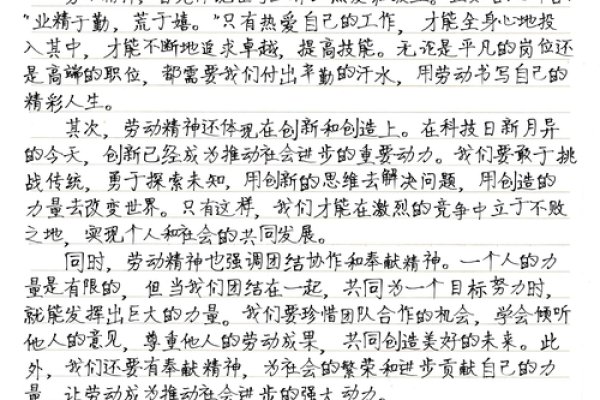 "业精于勤，荒于嬉。"只有热爱自己的工作，才能全身心地投
入其中，才能不断地追求卓越，提高技能。无论是平凡的岗位还
是高端的职位，都需要我们付出辛勤的汗水，用劳动书写自己的
精彩人生。
其次，劳动精神还体现在创新和创造上。在科技日新月异
的今天，创新已经成为推动社会进步的重要动力。我们要敢于挑
战传统，勇于探索未知，用创新的思维去解决问题，用创造的
力量去改变世界。只有这样，我们才能在激烈的竞争中立于不败
之地，实现个人和社会的共同发展。
同时，劳动精神也强调团结协作和奉献精神。一个人的力
量是有限的，但当我们团结在一起，共同为一个目标努力时，
就能发挥出巨大的力量。我们要珍惜团队合作的机会，学会倾听
他人的意见，尊重他人的劳动成果，共同创造美好的未来。此
外，我们还要有奉献精神，为社会的繁荣和进步贡献自己的力
量，让劳动成为推动社会进步的强大动力。